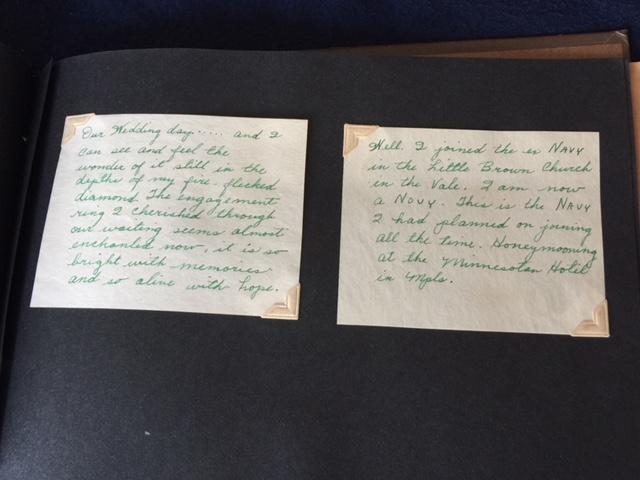 Our Wedding day..... and I
can see and feel the
wonder of it still in the
depths of my fire-flecked
diamond. The engagement
ring I cherished through
our waiting seems almost
enchanted now, it is so
bright with memories
and so alive with hope.
Well. I joined the er NAVY
in the Little Brown Church
in the Vale. I am now
a NOVY. This is the NAVY
I had planned on joining
all the time. Honeymooning
at the Minnesotan Hotel
in Mpls.